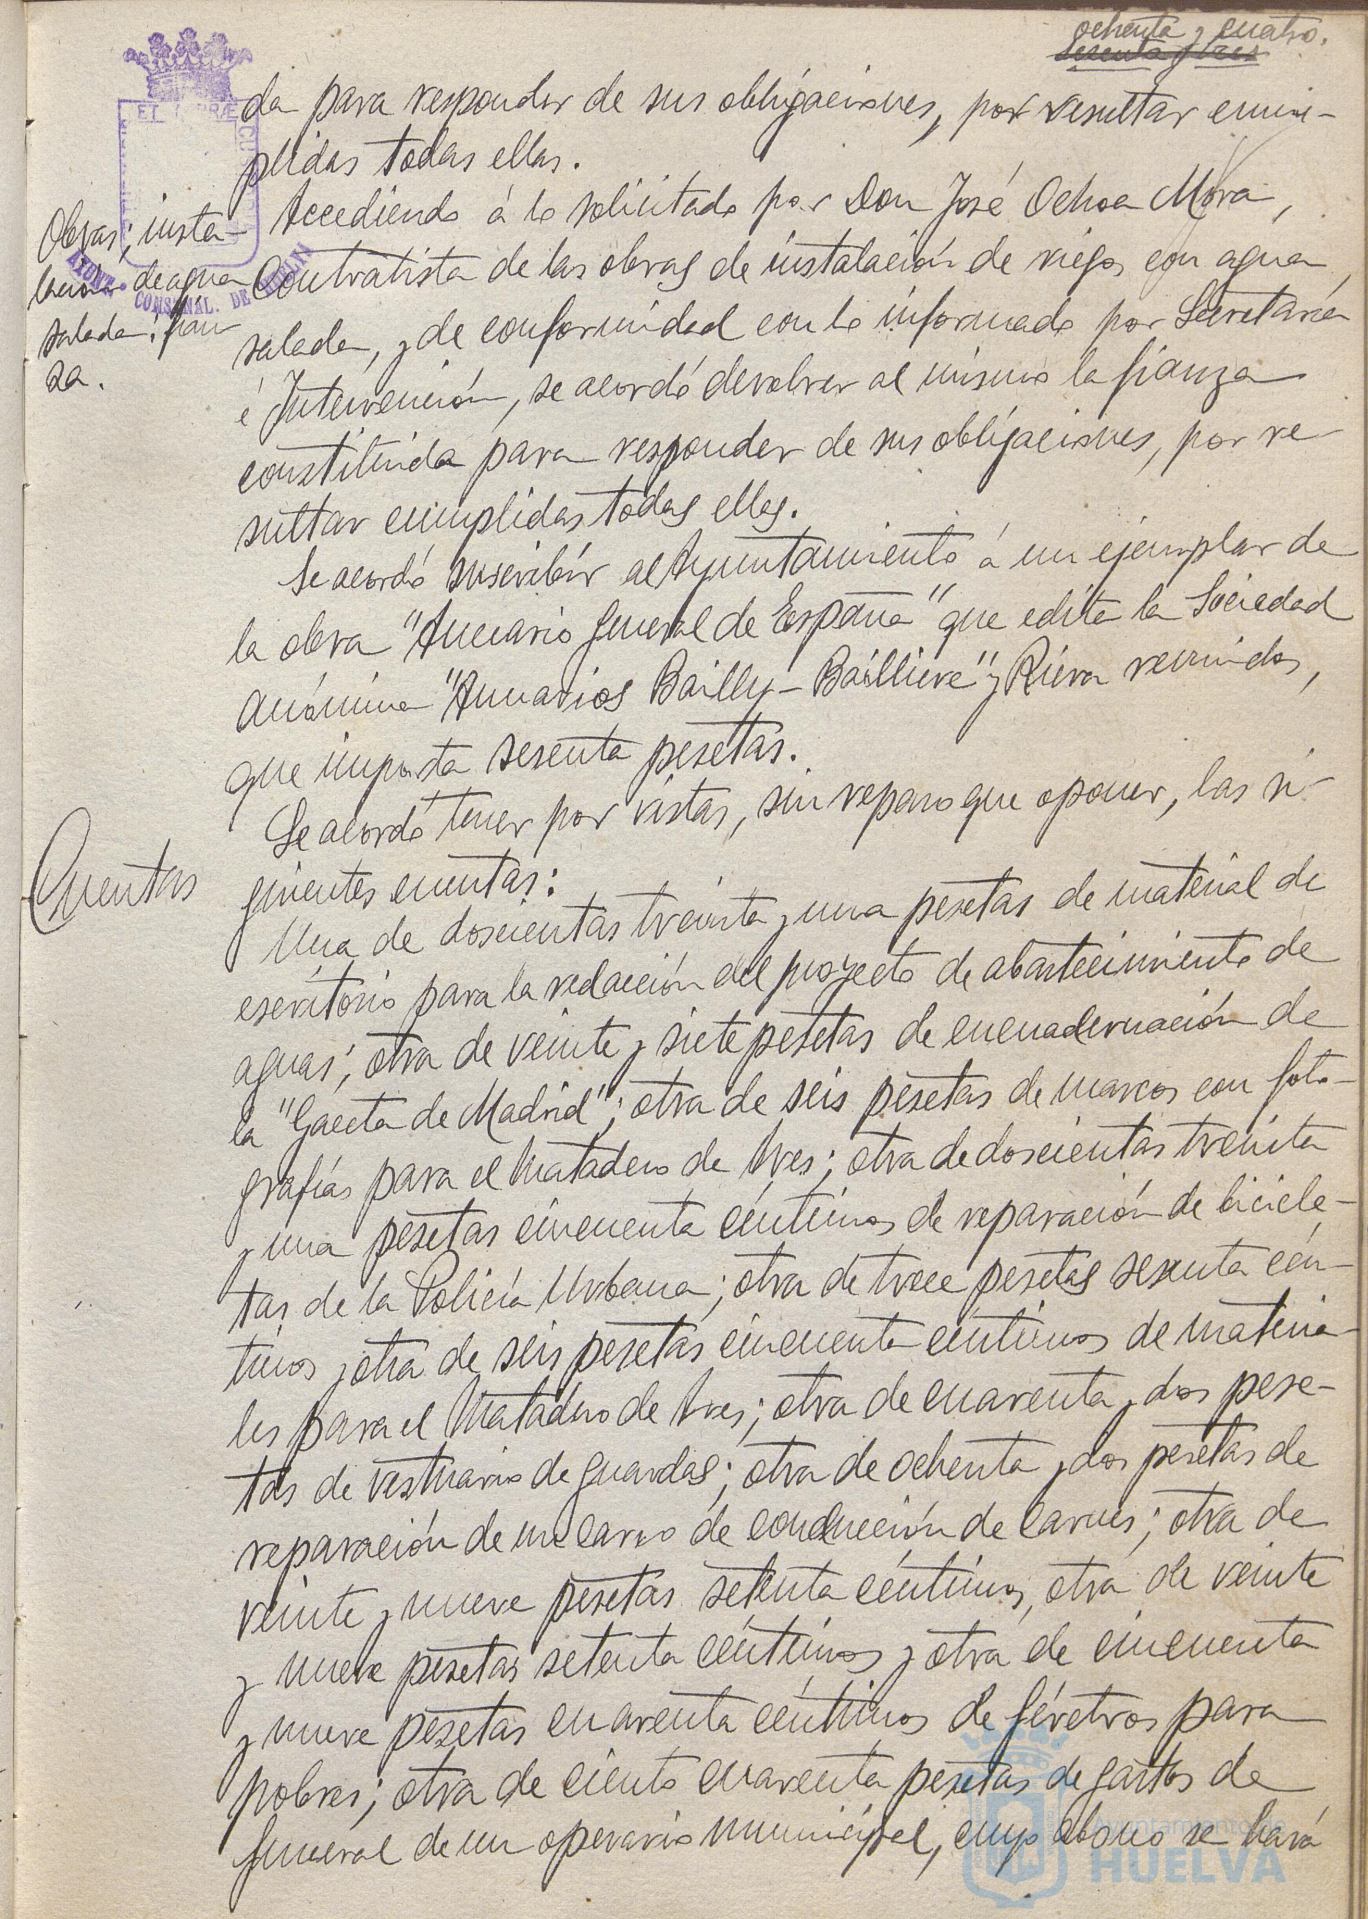 ochenta y cuatro.
sesenta y tres
da para responder de sus obligaciones, por resultar cum-
plidas todas ellas.
Obras; insta-
lación de agua
salada: fian-
za.
Accediendo á lo solicitado por Don José Ochoa Mora,
Contratista de las obras de instalación de riegos con agua
salada, y de conformidad con lo informado por Secretaría
é Intervención, se acordó devolver al mismo la fianza
constituida para responder de sus obligaciones, por re-
sultar cumplidas todas ellas.
Se acordó suscribir al Ayuntamiento á un ejemplar de
la obra "Anuario General de España" que edita la Sociedad
anónima "Anuarios Bailly-Bailliere" y Riera reunidos,
que importa sesenta pesetas.
Cuentas
Se acordó tener por vistas, sin reparo que oponer, las si-
guientes cuentas:
Una de doscientas treinta y una pesetas de material de
escritorio para la redacción del proyecto de abastecimiento de
aguas; otra de veinte y siete pesetas de encuadernación de
la "Gaceta de Madrid"; otra de seis pesetas de marcos con foto-
grafías para el Matadero de Aves; otra de doscientas treinta
y una pesetas cincuenta céntimos de reparación de bicicle-
tas de la Policía Urbana; otra de trece pesetas sesenta cén-
timos y otra de seis pesetas cincuenta céntimos de materia-
les para el Matadero de Aves; otra de cuarenta y dos pese-
tas de vestuario de guardas; otra de ochenta y dos pesetas de
reparación de un carro de conducción de carnes; otra de
veinte y nueve pesetas setenta céntimos, otra de veinte
y nueve pesetas setenta céntimos y otra de cincuenta
y nueve pesetas cuarenta céntimos de féretros para
pobres; otra de ciento cuarenta pesetas de gastos de
funeral de un operario municipal, cuyo abono se hará
Ayuntamiento de
HUELVA